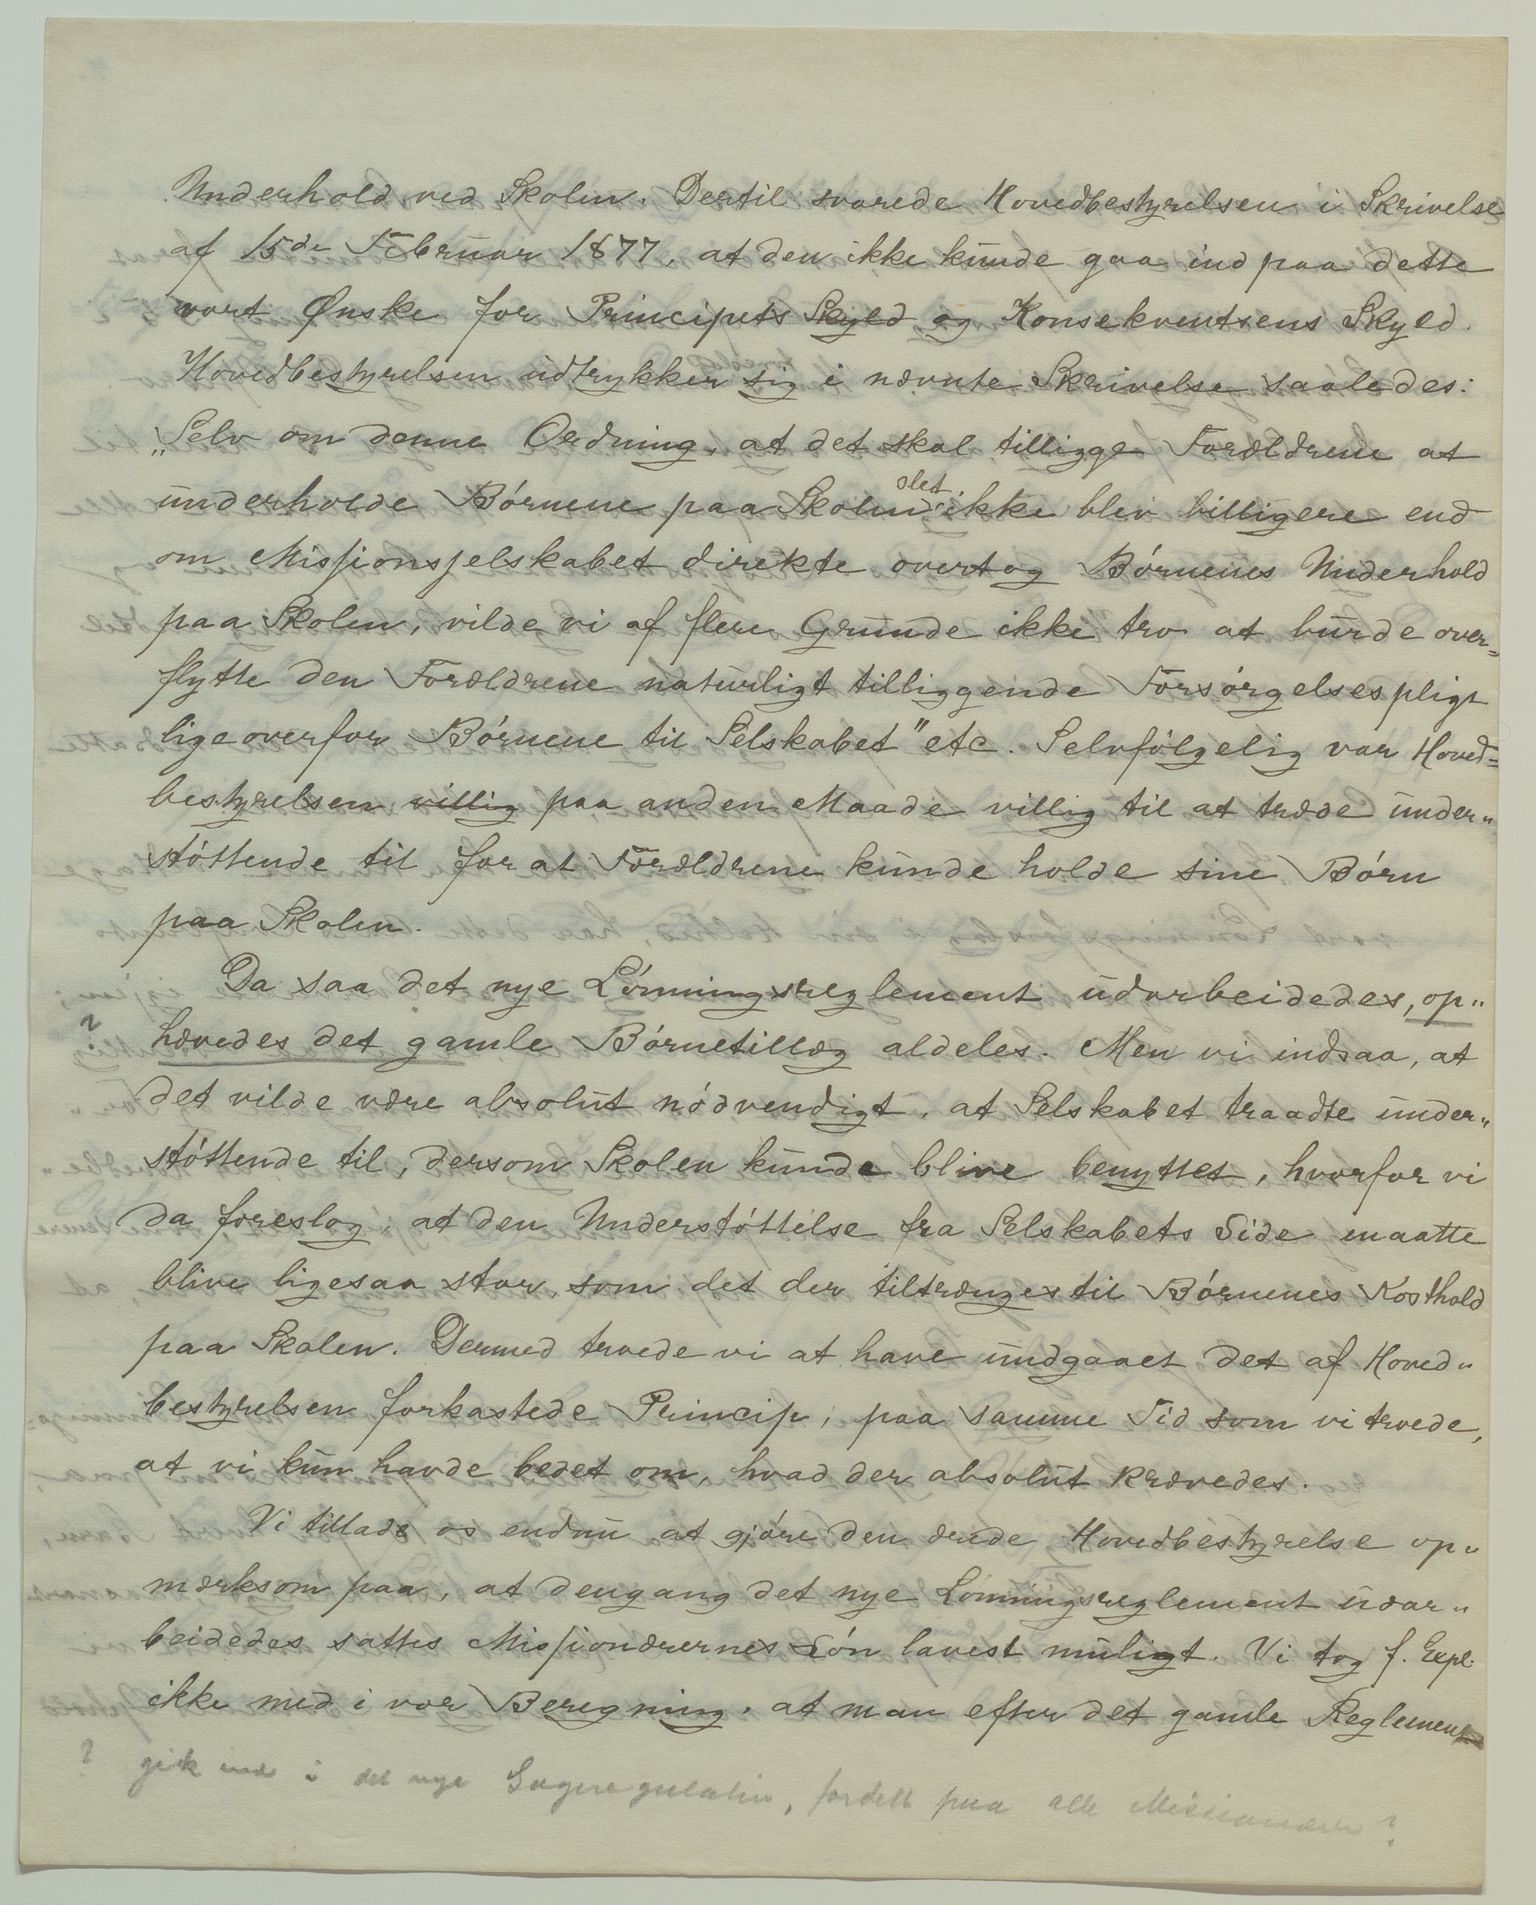 Underhold ved Skolen. Dertil svarede Hovedbestyrelsen i Skrivelse
af 15de Februar 1877, at den ikke kunde gaa ind paa dette
vort Ønske for Principets Skyld og Konsekventsens Skyld.
Hovedbestyrelsen udtrykker sig i nævnte Skrivelse saaledes:
"Selv om denne Ordning, at det skal tilligge Forældrene at
underholde Børnene paa Skolen slet ikke blev billigere end
om Missionsselskabet direkte overtog Børnenes Underhold
paa Skolen, vilde vi af flere Grunde ikke tro at burde over=
flytte den Forældrene naturligt tilliggende Forsørgelsespligt
ligeoverfor Børnene til Selskabet" etc. Selvfølgelig var Hoved=
bestyrelsen villig paa anden Maade villig til at træde under"
støttende til for at Forældrene kunde holde sine Børn
paa Skolen.
Da saa det nye Lønningsreglement udarbeidedes, op"
? hævedes det gamle Børnetillæg aldeles. Men vi indsaa, at
det vilde være absolut nødvendigt, at Selskabet traadte under"
støttende til, dersom Skolen kunde blive benyttet, hvorfor vi
da foreslog, at den Understøttelse fra Selskabets Side maatte
blive ligesaa stor, som det der tiltrænges til Børnenes Kosthold
paa Skolen. Dermed troede vi at have undgaaet det af Hoved"
bestyrelsen forkastede Princip, paa samme Tid som vi troede,
at vi kun havde bedet om, hvad der absolut krævedes.
Vi tillade os endnu at gjøre den ærede Hovedbestyrelse op"
mærksom paa, at dengang det nye Lønningsreglement udar"
beidedes sattes Missionærernes Løn lavest muligt. Vi tog f. Expl.
ikke med i vor Beregning, at man efter det gamle Reglement
? gik ind i det nye Gageregulativ, fordelt paa alle Missionærer?